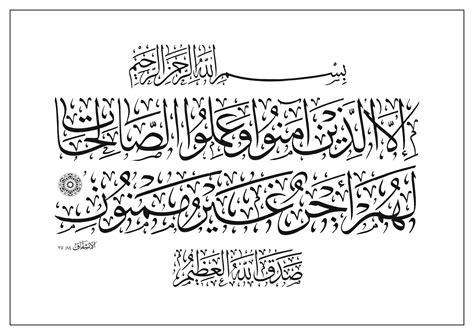 بسم الله الرحمن الرحيم
إلا الذين آمنوا وعملوا الصالحات
لهم أجر غير ممنون
الانشقاق
صدق الله العظيم